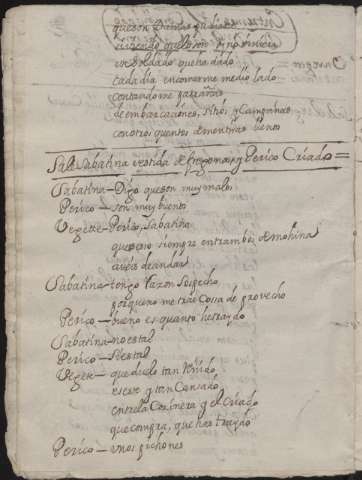 un soldado que ha dado
cada dia en correrme medio lado
contandome patrañas
de embarcaciones, sitios, y Campañas
con otros quentos de mentiras
Sale Sabatina vestida de fregona, y Perico Criado =
Sabatina — Digo que son muy malos
Perico — son muy buenos
Vegete — Perico, Sabatina
que no siempre entrambos de mohina
aveis de andar
Sabatina — tengo razon Sospecho
porque no me trae Cosa de provecho
Perico — bueno es quanto he traydo
Sabatina — no es tal
Perico — Si es tal
Vegete — que duelo tan Reñido
es ese y tan Cansado
entre la Cozinera y el Criado
que compra, que has traydo
Perico — unos pichones